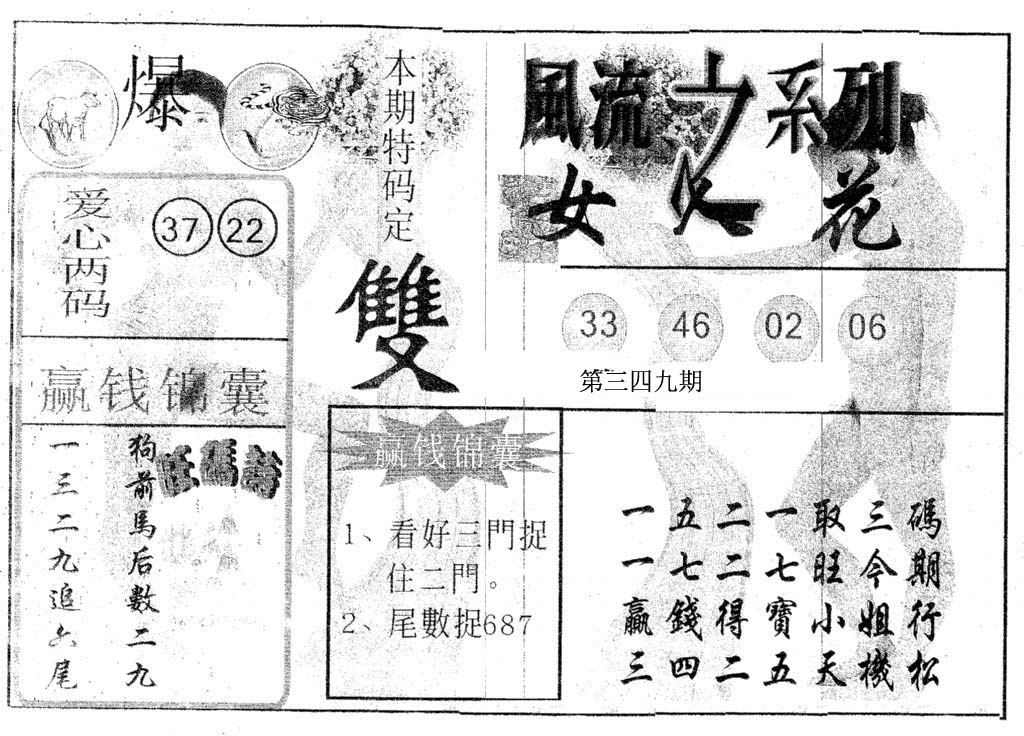 爆
爱心两码
37 22
赢钱锦囊
狗前馬后數二九
一三二九追六尾
本期特码定
雙
赢伐锦囊
1、看好三門捉
住二門。
2、尾數捉687
風流之系列
女人花
33 46 02 06
第三四九期
一五二一取三碼
一七二七旺今期
贏錢得寶小姐行
三四二五天機松